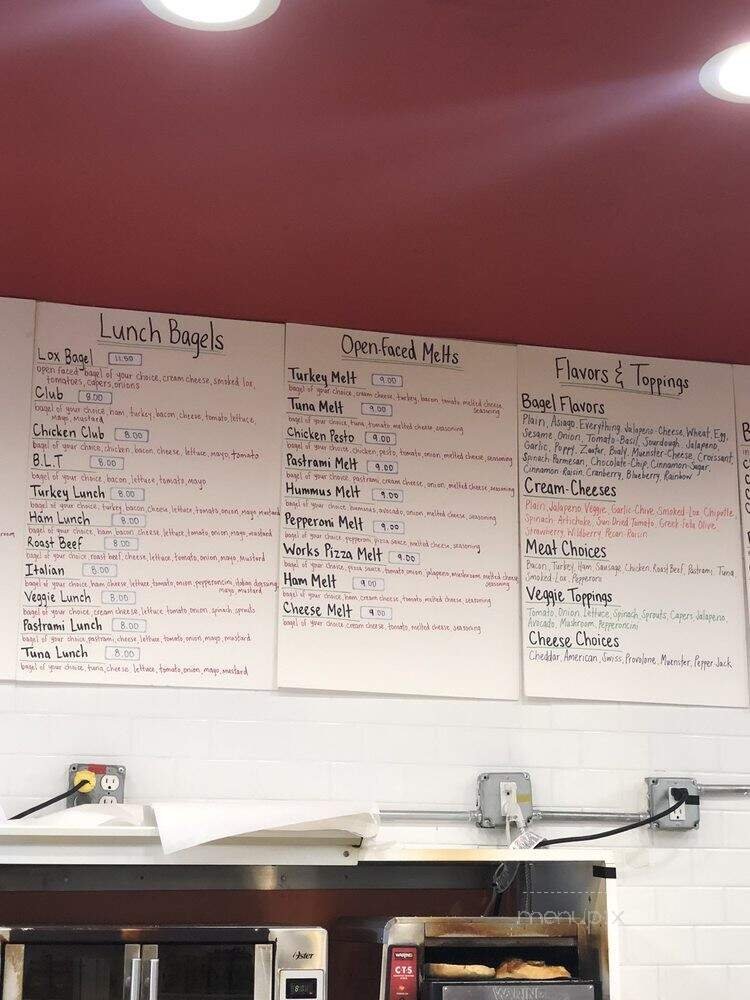 Lunch Bagels
Lox Bagel 11.50
open faced bagel of your choice, cream cheese, smoked lox,
tomatoes, capers, onions
Club 8.00
bagel of your choice, ham, turkey, bacon, cheese, tomato, lettuce,
mayo, mustard
Chicken Club 8.00
bagel of your choice, chicken, bacon, cheese, lettuce, mayo, tomato
B.L.T 8.00
bagel of your choice, bacon, lettuce, tomato, mayo
Turkey Lunch 8.00
bagel of your choice, turkey, bacon, cheese, lettuce, tomato, onion, mayo, mustard
Ham Lunch 8.00
bagel of your choice, ham, bacon, cheese, lettuce, tomato, onion, mayo, mustard
Roast Beef 8.00
bagel of your choice, roast beef, cheese, lettuce, tomato, onion, mayo, mustard
Italian 8.00
bagel of your choice, ham, cheese, lettuce, tomato, onion, pepperoncini, italian dressing,
mayo, mustard
Veggie Lunch 8.00
bagel of your choice, cream cheese, lettuce, tomato, onion, spinach, sprouts
Pastrami Lunch 8.00
bagel of your choice, pastrami, cheese, lettuce, tomato, onion, mayo, mustard
Tuna Lunch 8.00
bagel of your choice, tuna, cheese, lettuce, tomato, onion, mayo, mustard
Open-Faced Melts
Turkey Melt 9.00
bagel of your choice, cream cheese, turkey, bacon, tomato, melted cheese,
seasoning
Tuna Melt 9.00
bagel of your choice, tuna, tomato, melted cheese, seasoning
Chicken Pesto 9.00
bagel of your choice, chicken, pesto, tomato, onion, melted cheese, seasoning
Pastrami Melt 9.00
bagel of your choice, pastrami, cream cheese, onion, melted cheese, seasoning
Hummus Melt 9.00
bagel of your choice, hummus, avocado, onion, melted cheese, seasoning
Pepperoni Melt 9.00
bagel of your choice, pepperoni, pizza sauce, melted cheese, seasoning
Works Pizza Melt 9.00
bagel of your choice, pizza sauce, tomato, onion, jalapeno, mushroom, melted cheese
seasoning
Ham Melt 9.00
bagel of your choice, ham, cream cheese, tomato, melted cheese, seasoning
Cheese Melt 9.00
bagel of your choice cream cheese, tomato, melted cheese, seasoning
Flavors & Toppings
Bagel Flavors
Plain, Asiago, Everything, Jalapeno-Cheese, Wheat, Egg,
Sesame, Onion, Tomato-Basil, Sourdough, Jalapeno,
Garlic, Poppy, Zaatar, Bialy, Muenster-Cheese, Croissant,
Spinach Parmesan, Chocolate-Chip, Cinnamon-Sugar,
Cinnamon-Raisin, Cranberry, Blueberry, Rainbow
Cream-Cheeses
Plain, Jalapeno, Veggie, Garlic-Chive, Smoked-Lox, Chipotle
Spinach-Artichoke, Sun Dried Tomato, Greek-Feta Olive
Strawberry, Wildberry, Pecan-Raisin
Meat Choices
Bacon, Turkey, Ham, Sausage, Chicken, Roast Beef, Pastrami, Tuna,
Smoked-Lox, Pepperoni
Veggie Toppings
Tomato, Onion, Lettuce, Spinach, Sprouts, Capers, Jalapeno,
Avocado, Mushroom, Pepperoncini
Cheese Choices
Cheddar, American, Swiss, Provolone, Muenster, Pepper-Jack
menupix
Oster
WARING
CTS
WARING